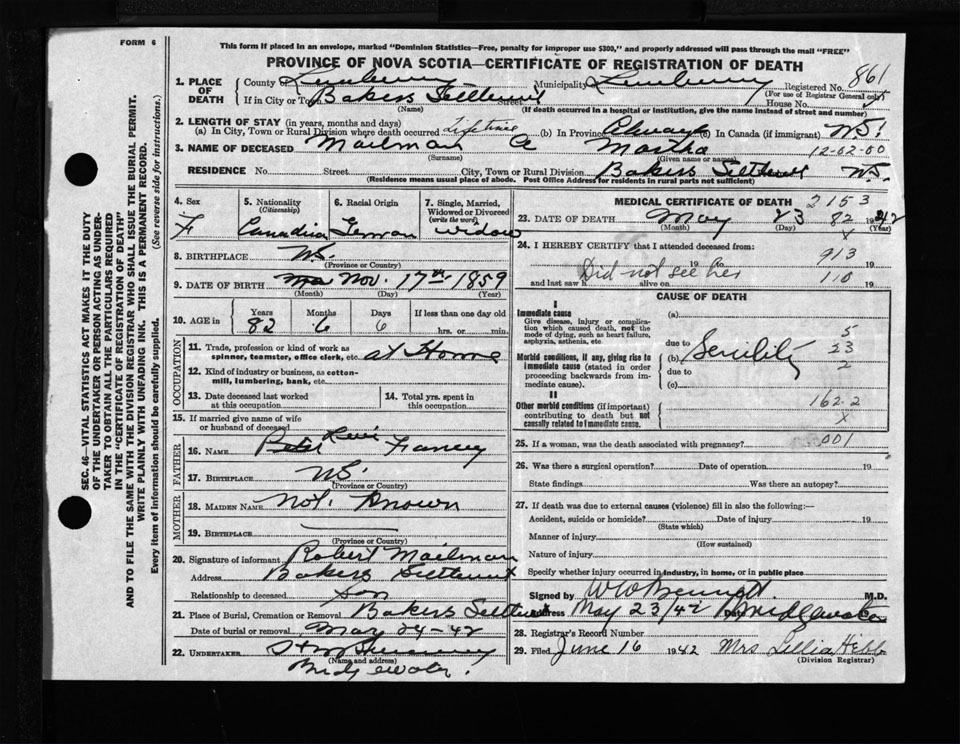 FORM 6
This form if placed in an envelope, marked "Dominion Statistics—Free, penalty for improper use $300," and properly addressed will pass through the mail "FREE"
PROVINCE OF NOVA SCOTIA—CERTIFICATE OF REGISTRATION OF DEATH
861
1. PLACE OF DEATH
County of Lunenburg Municipality Lunenburg Registered No.
(For use of Registrar General only)
If in City or Town Bakers Settlement Street House No.
(Name) (If death occurred in a hospital or institution, give the name instead of street and number)
2. LENGTH OF STAY (in years, months and days)
(a) In City, Town or Rural Division where death occurred Lifetime (b) In Province Always (c) In Canada (if immigrant) N.S.
3. NAME OF DECEASED Mailman Martha 12-02-00
(Surname) (Given name or names)
RESIDENCE No. Street City, Town or Rural Division Bakers Settlement N.S.
(Residence means usual place of abode. Post Office Address for residents in rural parts not sufficient)
4. Sex F
5. Nationality (Citizenship) Canadian
6. Racial Origin German
7. Single, Married, Widowed or Divorced (write the word) Widow
8. BIRTHPLACE N.S.
(Province or Country)
9. DATE OF BIRTH Nov. 17th 1859
(Month) (Day) (Year)
10. AGE in Years 82 Months 6 Days 6 If less than one day old hrs. or min.
OCCUPATION
11. Trade, profession or kind of work as spinner, teamster, office clerk, etc. at Home
12. Kind of industry or business, as cotton-mill, lumbering, bank, etc.
13. Date deceased last worked at this occupation
14. Total yrs. spent in this occupation
15. If married give name of wife or husband of deceased
FATHER
16. Name Peter
17. Birthplace N.S.
(Province or Country)
MOTHER
18. Maiden Name Not Known
19. Birthplace
(Province or Country)
20. Signature of informant Robert Mailman
Address Bakers Settlement
Relationship to deceased Son
21. Place of Burial, Cremation or Removal Bakers Settlement
Date of burial or removal May 24-42
22. Undertaker
(Name and address)
Bridgewater.
MEDICAL CERTIFICATE OF DEATH 2153
23. DATE OF DEATH May 23 82 1942
(Month) (Day) (Year)
X
24. I HEREBY CERTIFY that I attended deceased from:
19 to 913 19
Did not see her
and last saw h alive on 110 19
CAUSE OF DEATH
I
Immediate cause
Give disease, injury or complication which caused death, not the mode of dying, such as heart failure, asphyxia, asthenia, etc.
(a)
due to 5
Morbid conditions, if any, giving rise to immediate cause (stated in order proceeding backwards from immediate cause).
(b) Senility 23
due to 2
(c)
II
Other morbid conditions (if important) contributing to death but not causally related to immediate cause.
162-2
X
25. If a woman, was the death associated with pregnancy? 001
26. Was there a surgical operation? Date of operation 19
State findings Was there an autopsy?
27. If death was due to external causes (violence) fill in also the following:—
Accident, suicide or homicide? Date of injury 19
(State which)
Manner of injury
(How sustained)
Nature of injury
Specify whether injury occurred in industry, in home, or in public place
Signed by W W Bennett M.D.
May 23/42 Bridgewater
28. Registrar's Record Number
29. Filed June 16 1942 Mrs Lillia Hebb
(Division Registrar)
SEC. 46—VITAL STATISTICS ACT MAKES IT THE DUTY
OF THE UNDERTAKER OR PERSON ACTING AS UNDER-
TAKER TO OBTAIN ALL THE PARTICULARS REQUIRED
IN THE "CERTIFICATE OF REGISTRATION OF DEATH"
AND TO FILE THE SAME WITH THE DIVISION REGISTRAR WHO SHALL ISSUE THE BURIAL PERMIT.
WRITE PLAINLY WITH UNFADING INK. THIS IS A PERMANENT RECORD.
Every item of information should be carefully supplied. (See reverse side for instructions.)